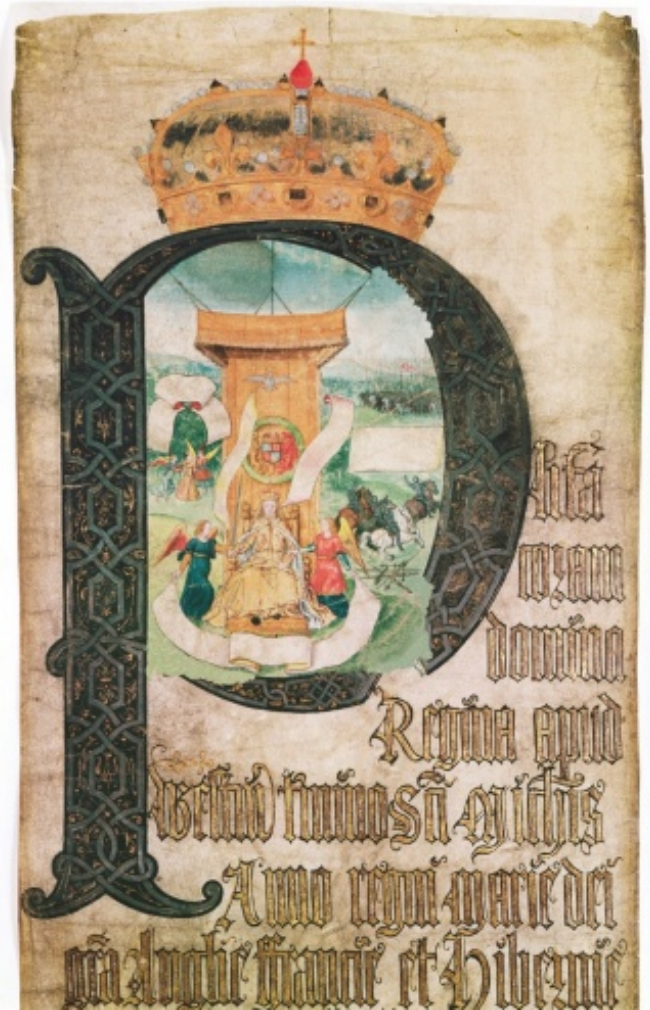 Plīta
coram
domina
Regina apud
Westm̄ termino Sc̄i Mich̄is
Anno regni Marie dei
gr̄a Anglie ffrancie et Hibernie